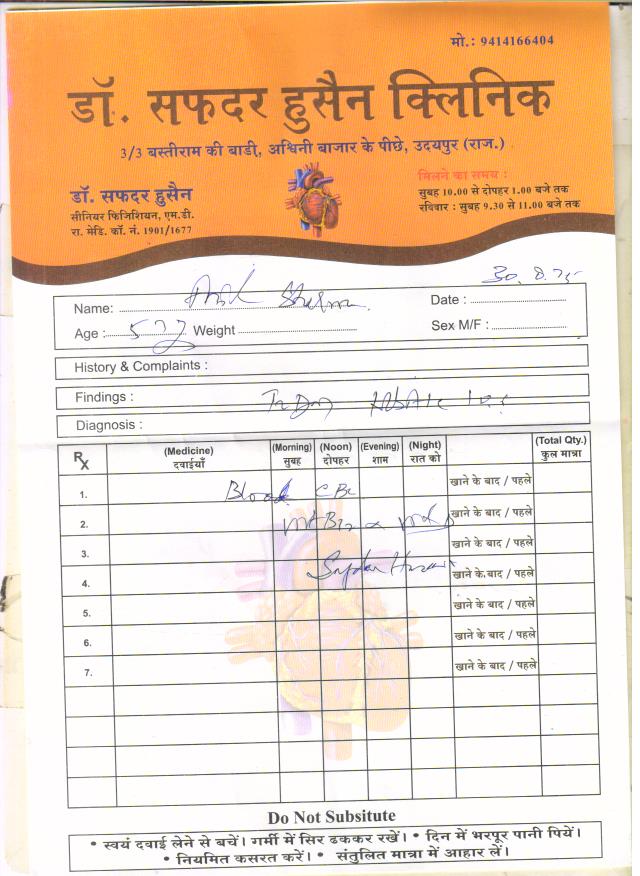 मो.: 9414166404
डॉ. सफदर हुसैन क्लिनिक
3/3 बस्तीराम की बाडी, अश्विनी बाजार के पीछे, उदयपुर (राज.)
डॉ. सफदर हुसैन
सीनियर फिजिशियन, एम.डी.
रा. मेडि. कॉ. नं. 1901/1677
मिलने का समय :
सुबह 10.00 से दोपहर 1.00 बजे तक
रविवार : सुबह 9.30 से 11.00 बजे तक
Name: Sharma Date : 30.8.25
Age : 57 Weight Sex M/F :
History & Complaints :
Findings : HbA1c
Diagnosis :
Rx (Medicine) (Morning) (Noon) (Evening) (Night) (Total Qty.)
दवाईयाँ सुबह दोपहर शाम रात को कुल मात्रा
1. Blood CBC खाने के बाद / पहले
2. खाने के बाद / पहले
3. खाने के बाद / पहले
4. खाने के बाद / पहले
5. खाने के बाद / पहले
6. खाने के बाद / पहले
7. खाने के बाद / पहले
Do Not Subsitute
* स्वयं दवाई लेने से बचें। गर्मी में सिर ढककर रखें। * दिन में भरपूर पानी पियें।
* नियमित कसरत करें। * संतुलित मात्रा में आहार लें।